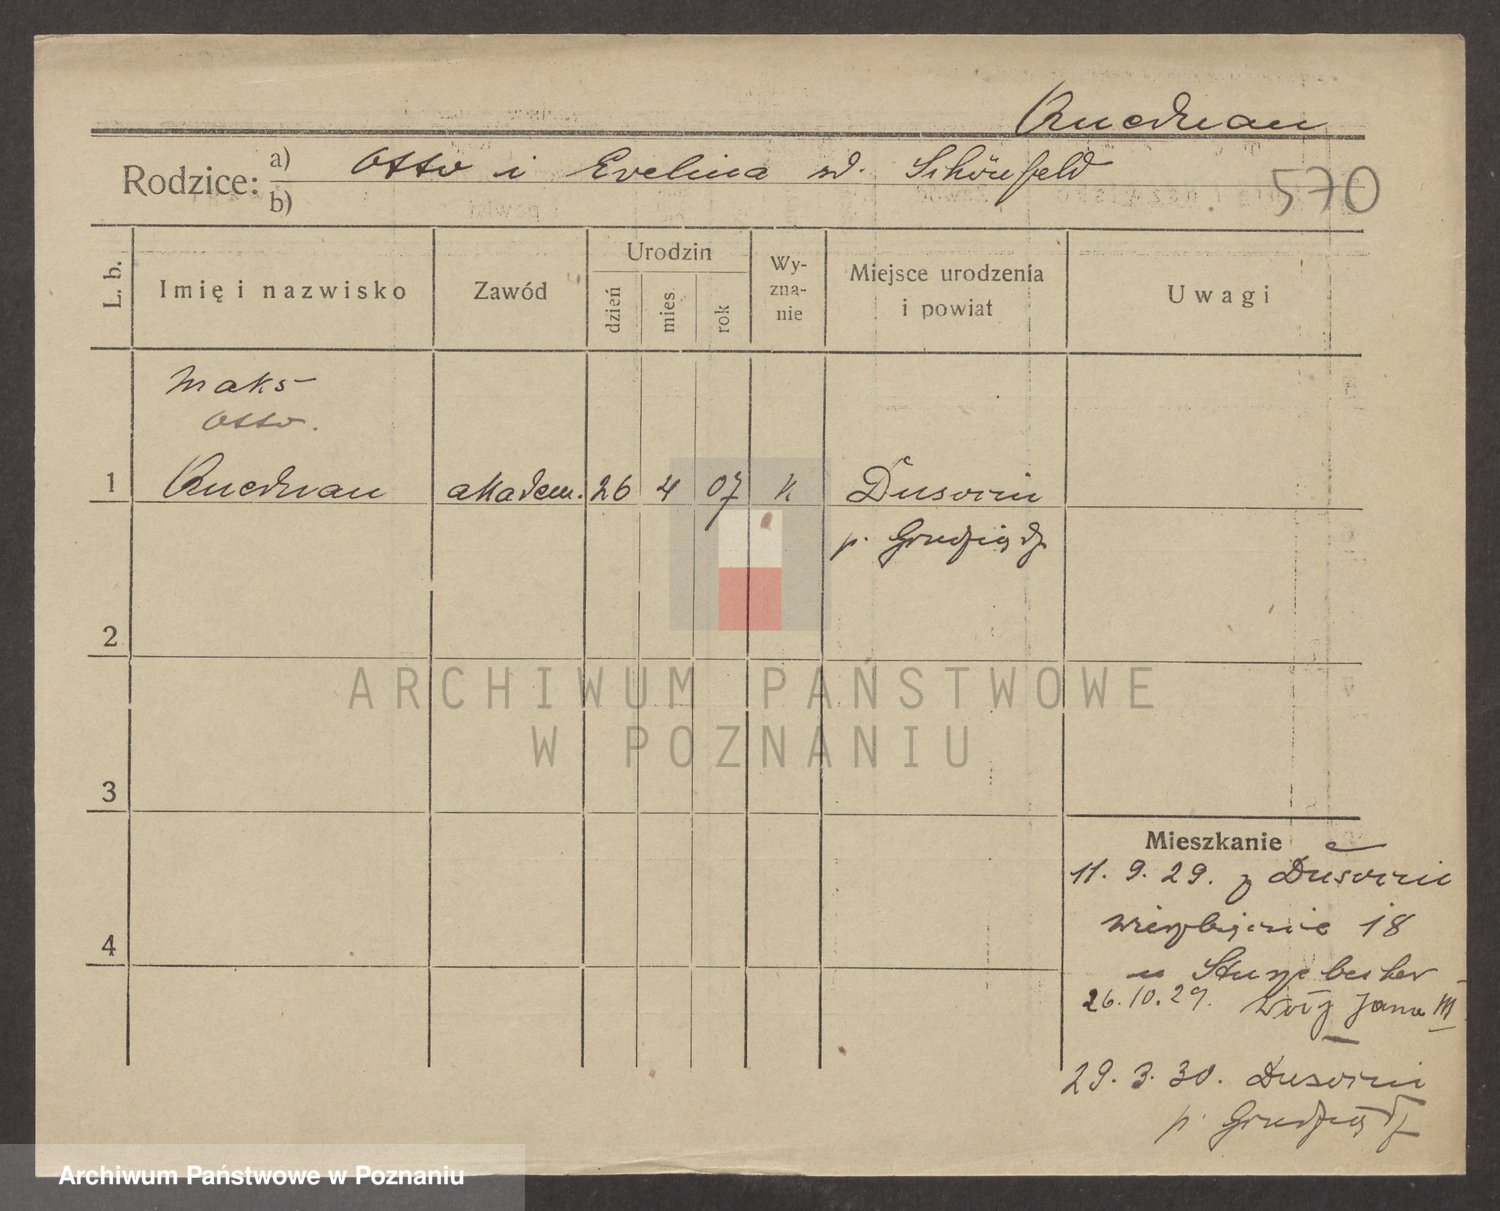 Ruchrau
Rodzice: a) Otto i Evelina zd. Schönfeld
b)
570
L. b.
Imię i nazwisko
Zawód
Urodzin
dzień
mies
rok
Wy-
zna-
nie
Miejsce urodzenia
i powiat
Uwagi
Maks
Otto.
1 akadem. 26 4 07 K Dusocin
p. Grudziądz
2
3
4
Mieszkanie
11. 9. 29. z Dusocin
Wierzbięcice 18
u
26.10.29. Jana III
29. 3. 30. Dusocin
p. Grudziądz
ARCHIWUM PAŃSTWOWE
W POZNANIU
Archiwum Państwowe w Poznaniu